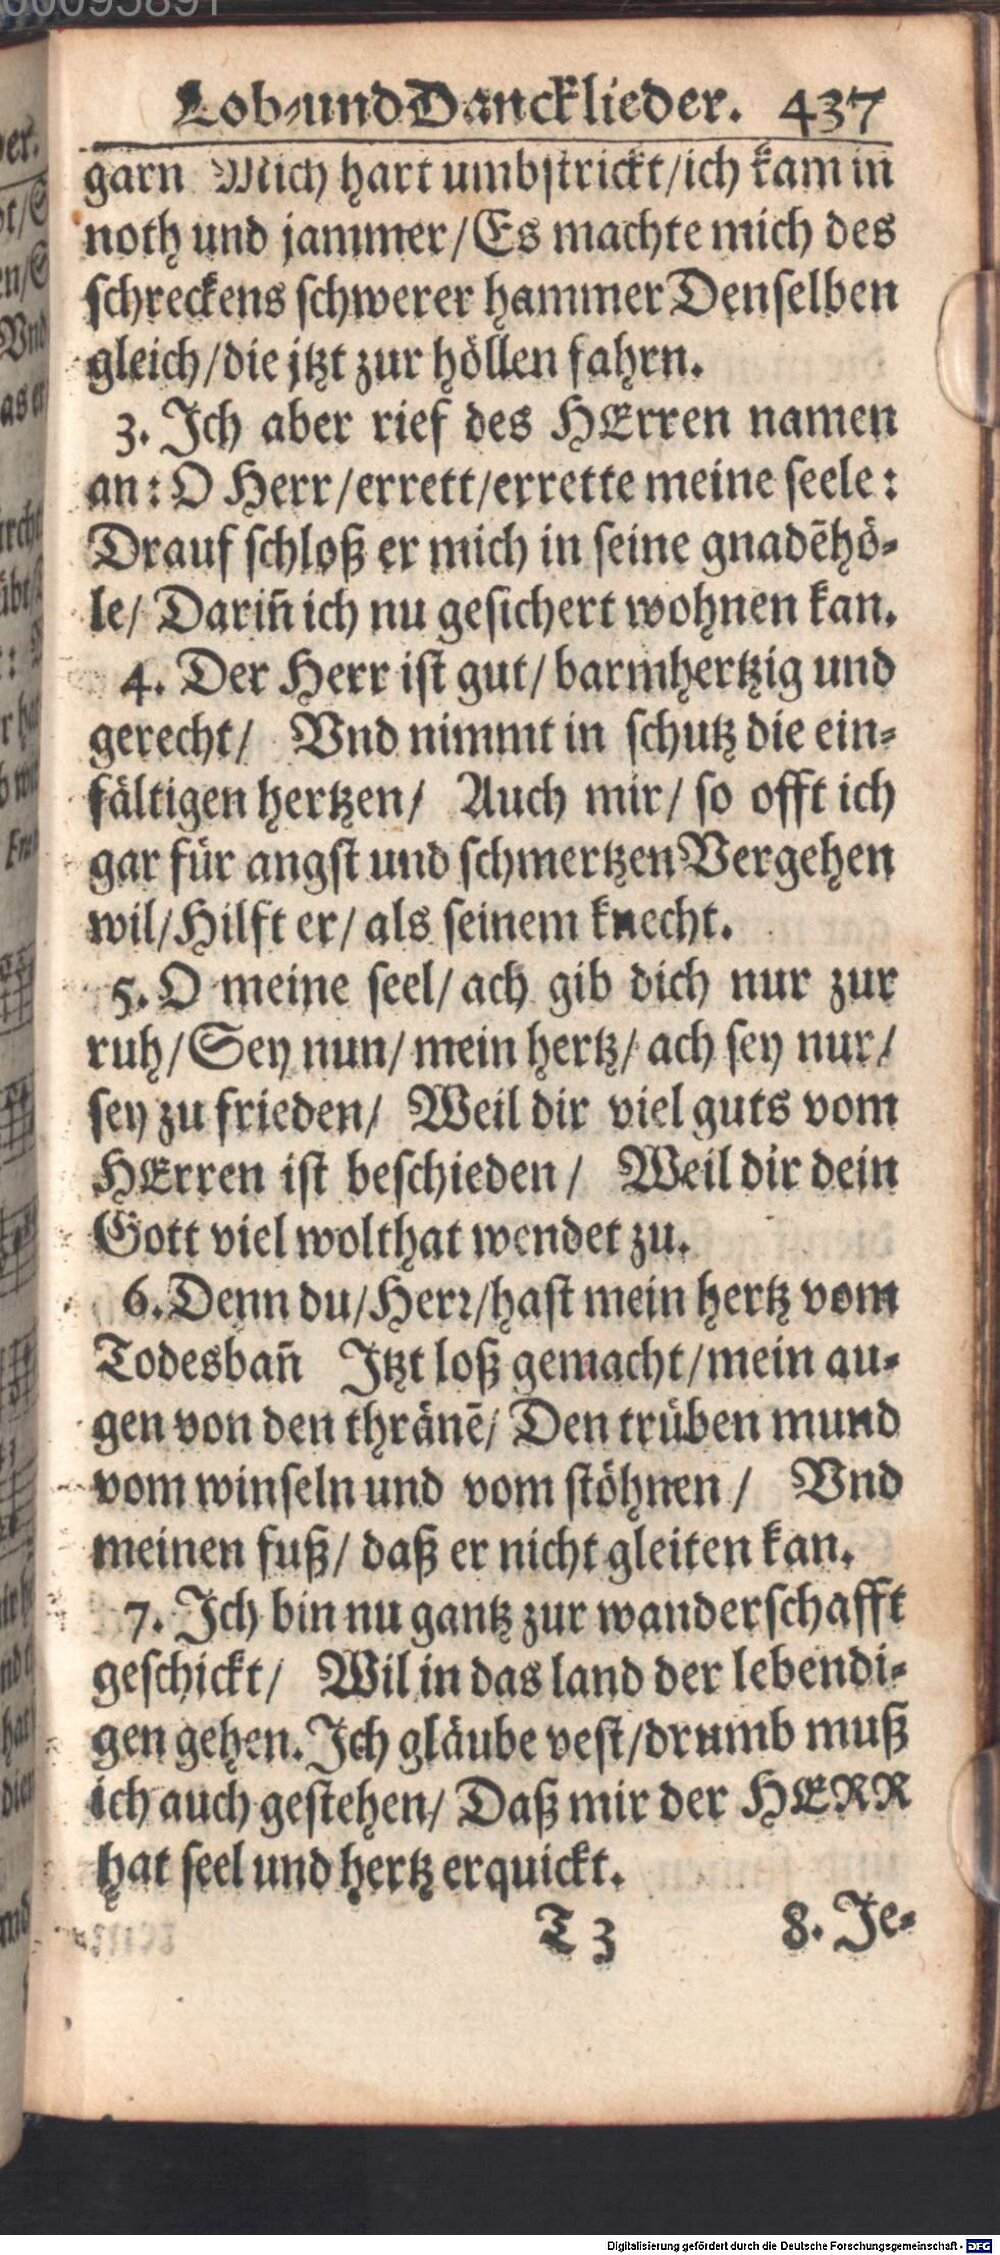 Lob-und Dancklieder. 437
garn Mich hart umbstrickt/ich kam in
noth und jammer/Es machte mich des
schreckens schwerer hammer Denselben
gleich/die jtzt zur höllen fahrn.
3. Ich aber rief des HErren namen
an: O Herr/errett/errette meine seele:
Drauf schloß er mich in seine gnadēhö-
le/ Dariñ ich nu gesichert wohnen kan.
4. Der Herr ist gut/ barmhertzig und
gerecht/ Vnd nimmt in schutz die ein-
fältigen hertzen/ Auch mir/ so offt ich
gar für angst und schmertzen Vergehen
wil/Hilft er/ als seinem knecht.
5. O meine seel/ ach gib dich nur zur
ruh/Sey nun/ mein hertz/ ach sey nur/
sey zu frieden/ Weil dir viel guts vom
HErren ist beschieden/ Weil dir dein
Gott viel wolthat wendet zu.
6. Denn du/Herr/hast mein hertz vom
Todesbañ Itzt loß gemacht/mein au-
gen von den thränē/ Den trüben mund
vom winseln und vom stöhnen/ Vnd
meinen fuß/ daß er nicht gleiten kan.
7. Ich bin nu gantz zur wanderschafft
geschickt/ Wil in das land der lebendi-
gen gehen. Ich gläube vest/drumb muß
ich auch gestehen/ Daß mir der HERR
hat seel und hertz erquickt.
T 3 8. Je-
Digitalisierung gefördert durch die Deutsche Forschungsgemeinschaft - DFG